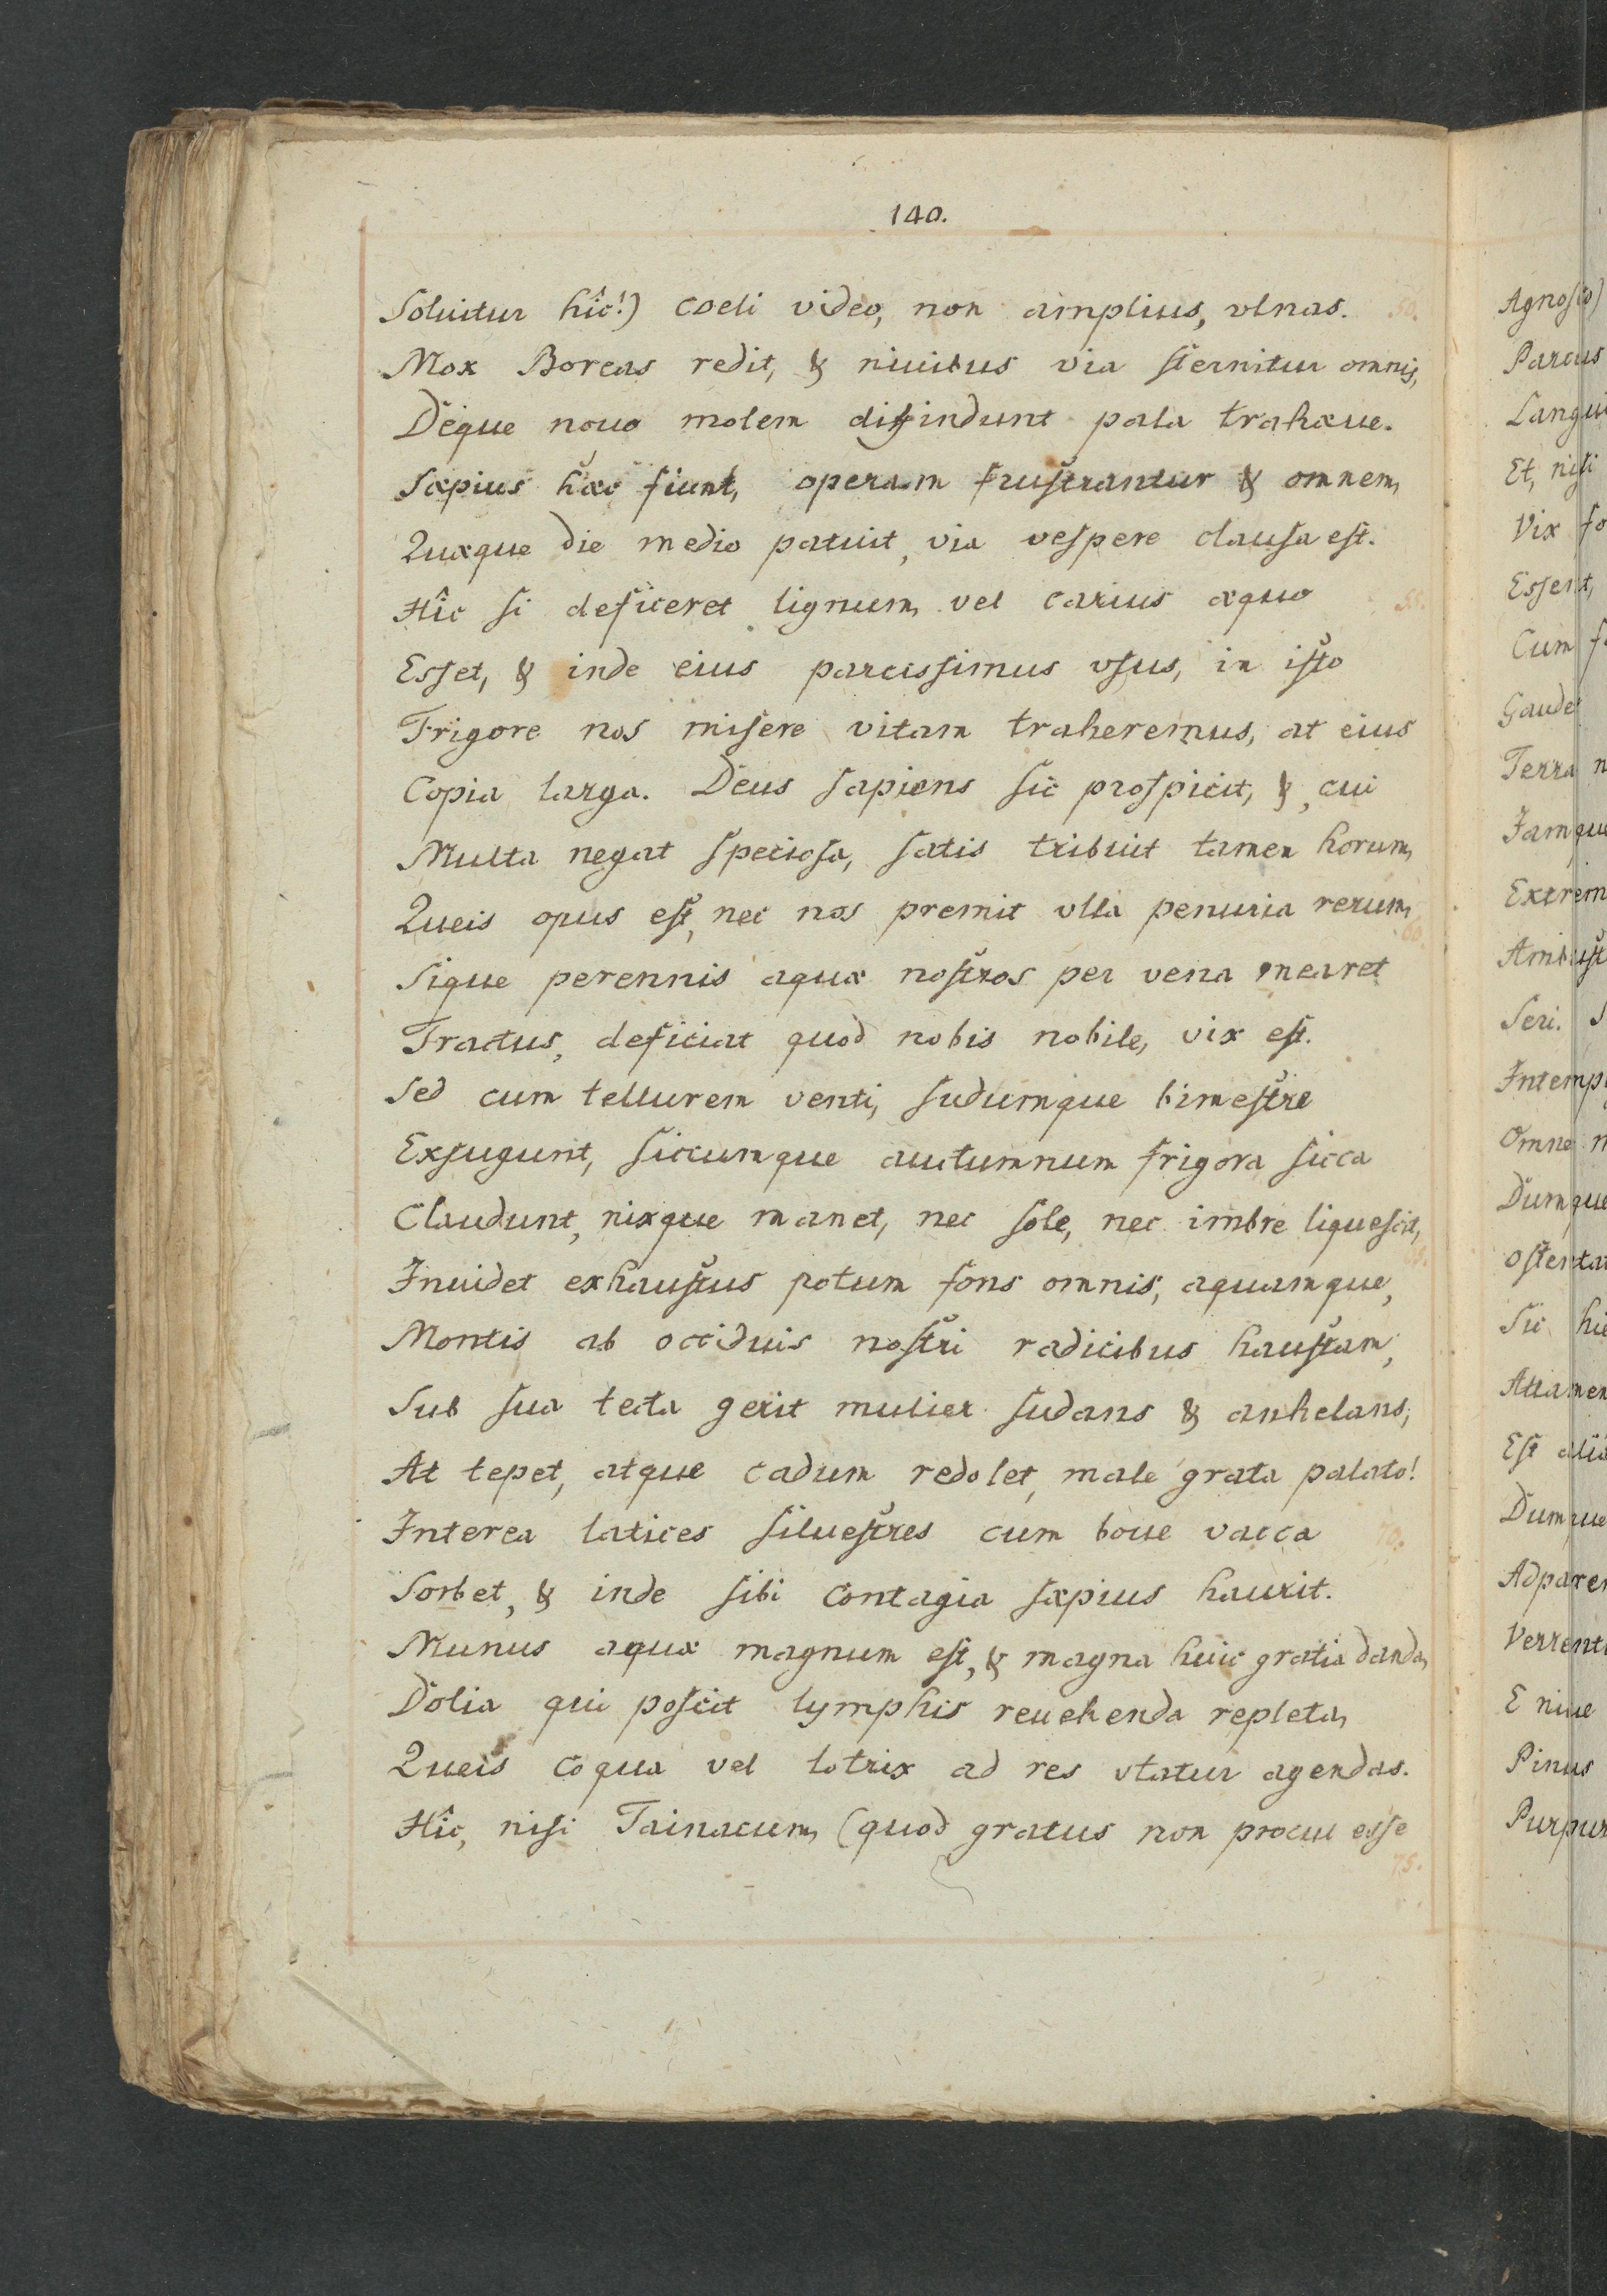 140.
Soluitur hîc!) coeli video, non amplius, vlnas. 50.
Mox Boreas redit, & niuibus via sternitur omnis,
Deque nouo molem diffindunt pala trahæue.
Sæpius hæc fiunt, operam frustrantur & omnem,
Quæque die medio patuit, via vespere clausa est.
Hîc si deficeret lignum, vel carius æquo 55.
Esset, & inde eius parcissimus vsus, in isto
Frigore nos misere vitam traheremus, at eius
Copia larga. Deus sapiens sic prospicit, &, cui
Multa negat speciosa, satis tribuit tamen horum,
Queis opus est, nec nos premit vlla penuria rerum, 60.
Sique perennis aquæ nostros per vena mearet
Tractus, deficiat quod nobis nobile, vix est.
Sed cum tellurem venti, sudumque bimestre
Exsugunt, siccumque auctumnum frigora sicca
Claudunt, nixque manet, nec sole, nec imbre liquescit, 65.
Inuidet exhaustus potum fons omnis, aquamque,
Montis ab occiduis nostri radicibus haustam,
Sub sua tecta gerit mulier sudans & anhelans;
At tepet, atque cadum redolet, male grata palato!
Interea latices siluestres cum boue vacca 70.
Sorbet, & inde sibi contagia sæpius haurit.
Munus aquæ magnum est, & magna huic gratia danda,
Dolia qui poscit lymphis reuehenda repleta,
Queis coqua vel lotrix ad res vtatur agendas.
Hîc, nisi Tainacum, (quod gratus non procul esse 75.
Agnosco)
Parcus
Langui
Et, nisi
Vix fo
Essent,
Cum
Gaude
Terra n
Jamque
Extrem
Ambust
Seri. S
Intemp
Omne n
Dumque
Ostentat
Sic hie
Attamen
Est alia
Dumque
Adparen
Verrent
E niue
Pinus
Purpur